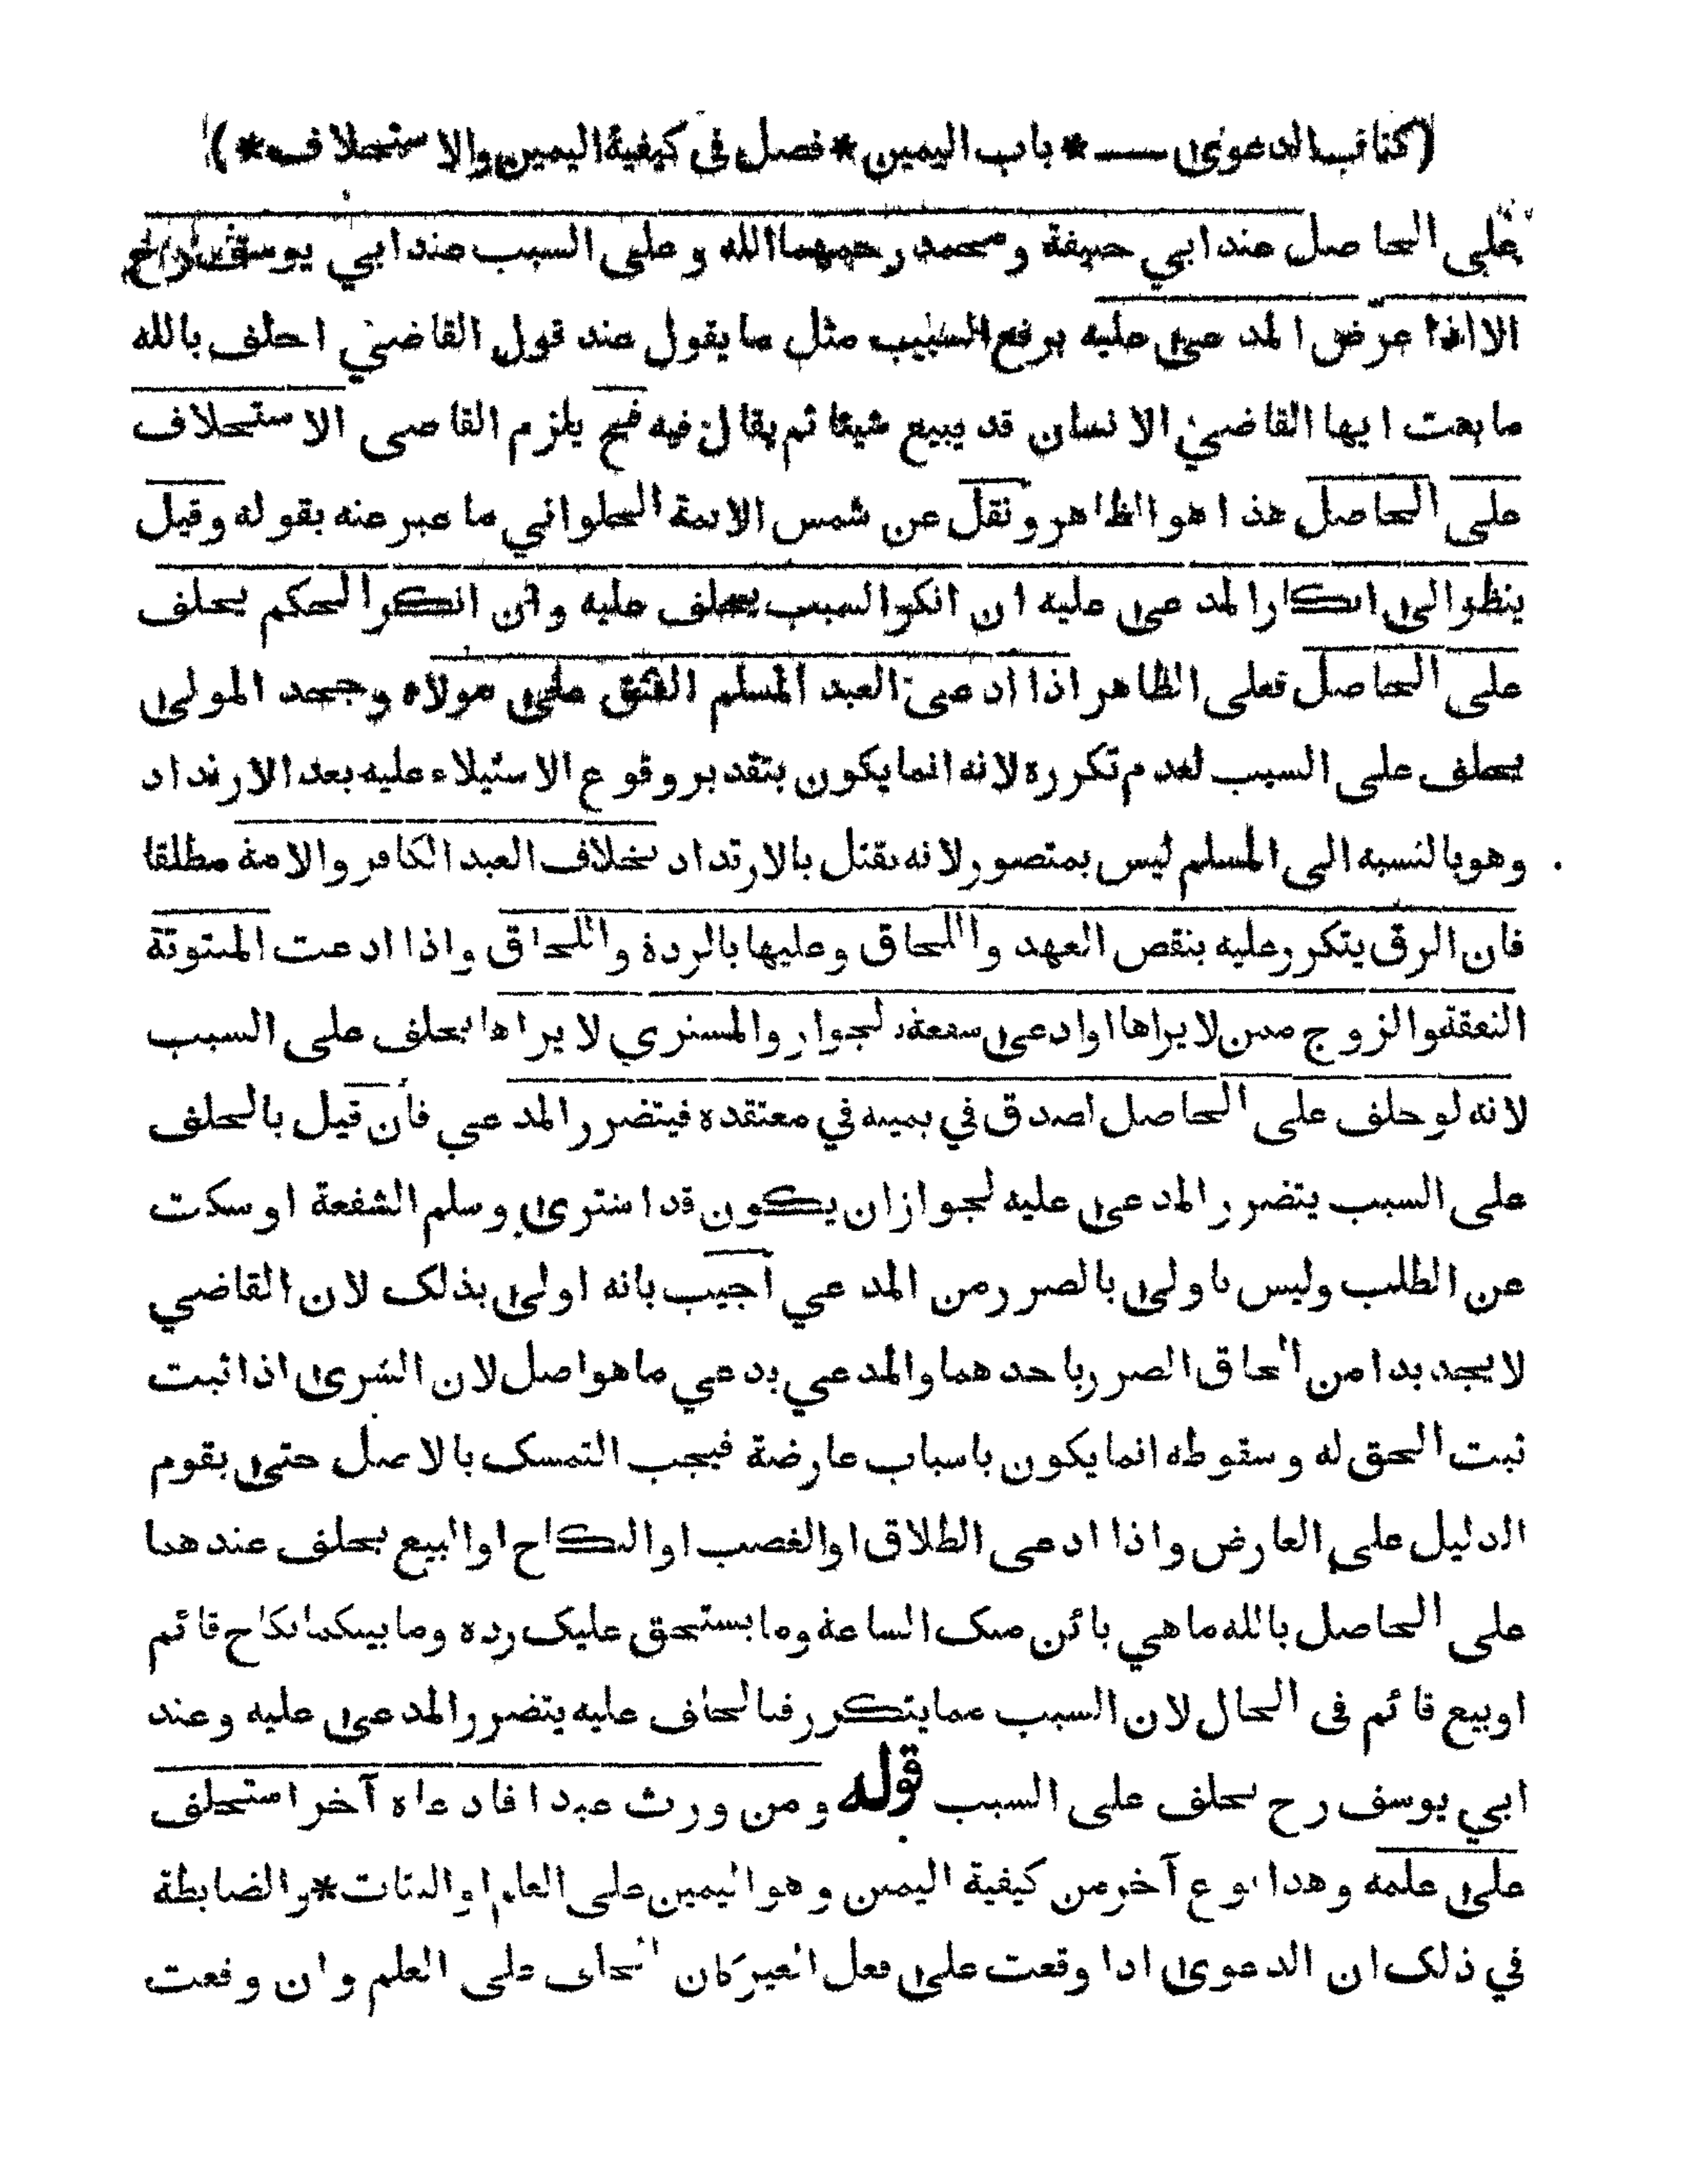 (كتاب الدعوى — * باب اليمين * فصل في كيفية اليمين والاستحلاف *)
على الحاصل عند ابي حنيفة ومحمد رحمهما الله وعلى السبب عند ابي يوسف رح
الا اذا عرض المدعى عليه برفع السبب مثل ما يقول عند قول القاضي احلف بالله
ما بعت ايها القاضي الانسان قد يبيع شيئا ثم يقال فيه فح يلزم القاضى الاستحلاف
على الحاصل هذا هو الظاهر ونقل عن شمس الائمة الحلواني ما عبر عنه بقوله وقيل
ينظر الى انكار المدعى عليه ان انكر السبب يحلف عليه وان انكر الحكم يحلف
على الحاصل فعلى الظاهر اذا ادعى العبد المسلم العتق على مولاه وجحد المولى
يحلف على السبب لعدم تكرره لانه انما يكون بتقدير وقوع الاستيلاء عليه بعد الارتداد
وهو بالنسبه الى المسلم ليس بمتصور لانه يقتل بالارتداد بخلاف العبد الكافر والامة مطلقا
فان الرق يتكرر عليه بنقض العهد واللحاق وعليها بالردة واللحاق واذا ادعت المبتوتة
النفقة والزوج ممن لا يراها او ادعى سفعة بالجوار والمشتري لا يراها يحلف على السبب
لانه لو حلف على الحاصل لصدق في يمينه في معتقده فيتضرر المدعي فان قيل بالحلف
على السبب يتضرر المدعى عليه لجواز ان يكون قد اشترى وسلم الشفعة او سكت
عن الطلب وليس باولى بالضرر من المدعي اجيب بانه اولى بذلك لان القاضي
لا يجد بدا من الحاق الضرر باحدهما والمدعي يدعي ما هو اصل لان الشرى اذا ثبت
ثبت الحق له وسقوطه انما يكون باسباب عارضة فيجب التمسك بالاصل حتى يقوم
الدليل على العارض واذا ادعى الطلاق او الغصب او النكاح او البيع يحلف عندهما
على الحاصل بالله ما هي بائن منك الساعة وما يستحق عليك رده وما بينكما نكاح قائم
او بيع قائم فى الحال لان السبب مما يتكرر فبالحلف عليه يتضرر المدعى عليه وعند
ابي يوسف رح يحلف على السبب قوله ومن ورث عبدا فادعاه آخر استحلف
على علمه وهذا نوع آخر من كيفية اليمين وهو اليمين على العلم او البتات * والضابطة
في ذلك ان الدعوى اذا وقعت على فعل الغير كان الحلف على العلم وان وقعت